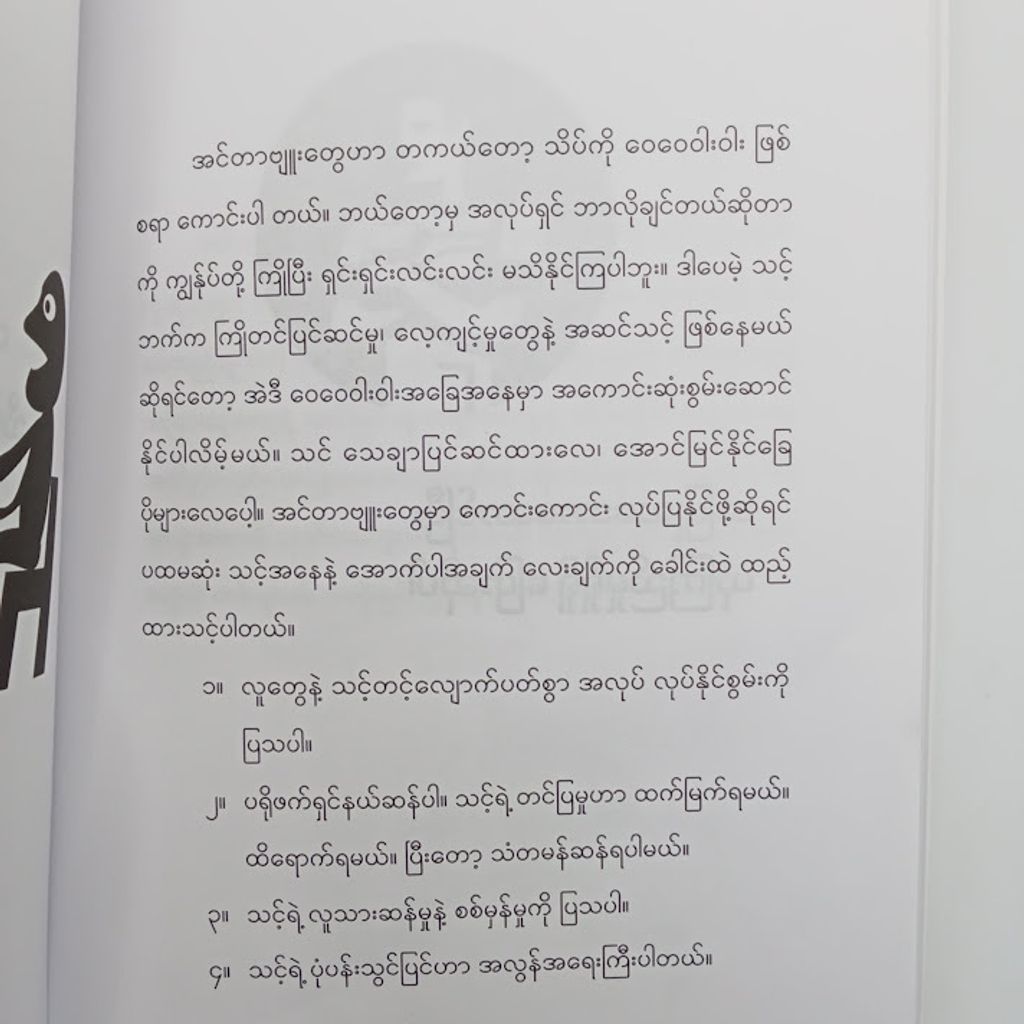 အင်တာဗျူးတွေဟာ တကယ်တော့ သိပ်ကို ဝေဝေဝါးဝါး ဖြစ်
စရာ ကောင်းပါ တယ်။ ဘယ်တော့မှ အလုပ်ရှင် ဘာလိုချင်တယ်ဆိုတာ
ကို ကျွန်ုပ်တို့ ကြိုပြီး ရှင်းရှင်းလင်းလင်း မသိနိုင်ကြပါဘူး။ ဒါပေမဲ့ သင့်
ဘက်က ကြိုတင်ပြင်ဆင်မှု၊ လေ့ကျင့်မှုတွေနဲ့ အဆင်သင့် ဖြစ်နေမယ်
ဆိုရင်တော့ အဲဒီ ဝေဝေဝါးဝါးအခြေအနေမှာ အကောင်းဆုံးစွမ်းဆောင်
နိုင်ပါလိမ့်မယ်။ သင် သေချာပြင်ဆင်ထားလေ၊ အောင်မြင်နိုင်ခြေ
ပိုများလေပေါ့။ အင်တာဗျူးတွေမှာ ကောင်းကောင်း လုပ်ပြနိုင်ဖို့ဆိုရင်
ပထမဆုံး သင့်အနေနဲ့ အောက်ပါအချက် လေးချက်ကို ခေါင်းထဲ ထည့်
ထားသင့်ပါတယ်။
၁။ လူတွေနဲ့ သင့်တင့်လျောက်ပတ်စွာ အလုပ် လုပ်နိုင်စွမ်းကို
ပြသပါ။
၂။ ပရိုဖက်ရှင်နယ်ဆန်ပါ။ သင့်ရဲ့ တင်ပြမှုဟာ ထက်မြက်ရမယ်။
ထိရောက်ရမယ်။ ပြီးတော့ သံတမန်ဆန်ရပါမယ်။
၃။ သင့်ရဲ့ လူသားဆန်မှုနဲ့ စစ်မှန်မှုကို ပြသပါ။
၄။ သင့်ရဲ့ ပုံပန်းသွင်ပြင်ဟာ အလွန်အရေးကြီးပါတယ်။